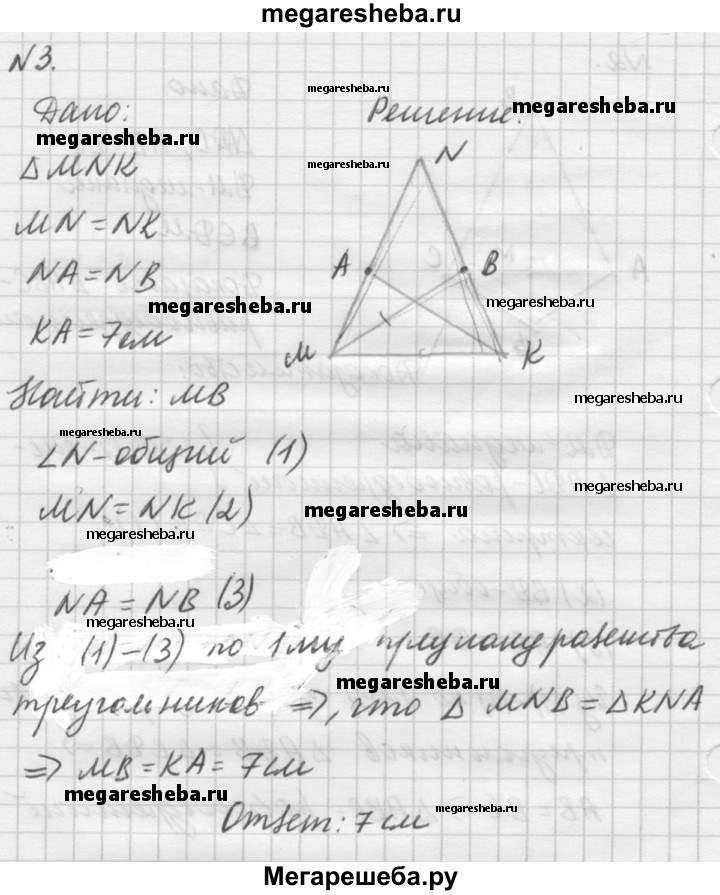 megaresheba.ru
N3.
megaresheba.ru
Дано: Решение:
megaresheba.ru
megaresheba.ru
megaresheba.ru
Δ MNK
N
MN = NK
A B
NA = NB
megaresheba.ru
megaresheba.ru
KA = 7см
M K
Найти: MB
megaresheba.ru
megaresheba.ru
∠N - общий (1)
megaresheba.ru
MN = NK (2)
megaresheba.ru
megaresheba.ru
NA = NB (3)
megaresheba.ru
Из (1)-(3) по 1му признаку равенства
megaresheba.ru
треугольников ⇒, что Δ MNB = Δ KNA
⇒ MB = KA = 7см
megaresheba.ru
megaresheba.ru
Ответ: 7 см
Мегарешеба.ру